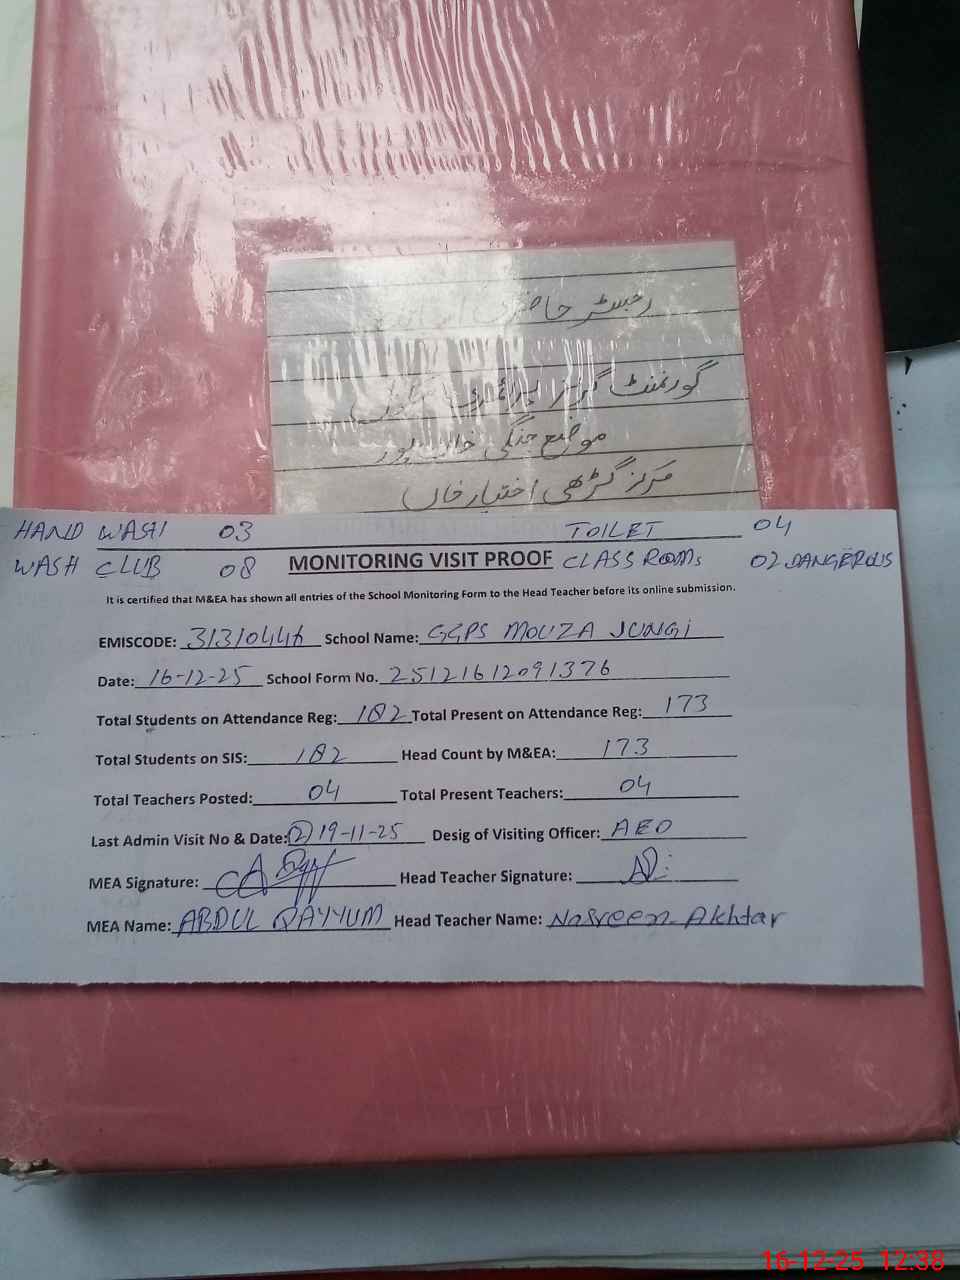 رجسٹر حاضری
گورنمنٹ گرلز پرائمری سکول
موضع جنگی خان پور
مرکز گڑھی اختیار خاں
HAND WASH 03 TOILET 04
WASH CLUB 08 MONITORING VISIT PROOF CLASS ROOMs 02 DANGEROUS
It is certified that M&EA has shown all entries of the School Monitoring Form to the Head Teacher before its online submission.
EMISCODE: 31310446 School Name: GGPS MOUZA JUNGI
Date: 16-12-25 School Form No. 25121612091376
Total Students on Attendance Reg: 182 Total Present on Attendance Reg: 173
Total Students on SIS: 182 Head Count by M&EA: 173
Total Teachers Posted: 04 Total Present Teachers: 04
Last Admin Visit No & Date: (2) 19-11-25 Desig of Visiting Officer: AEO
MEA Signature: Head Teacher Signature:
MEA Name: ABDUL QAYYUM Head Teacher Name: Nasreen Akhtar
16-12-25 12:38